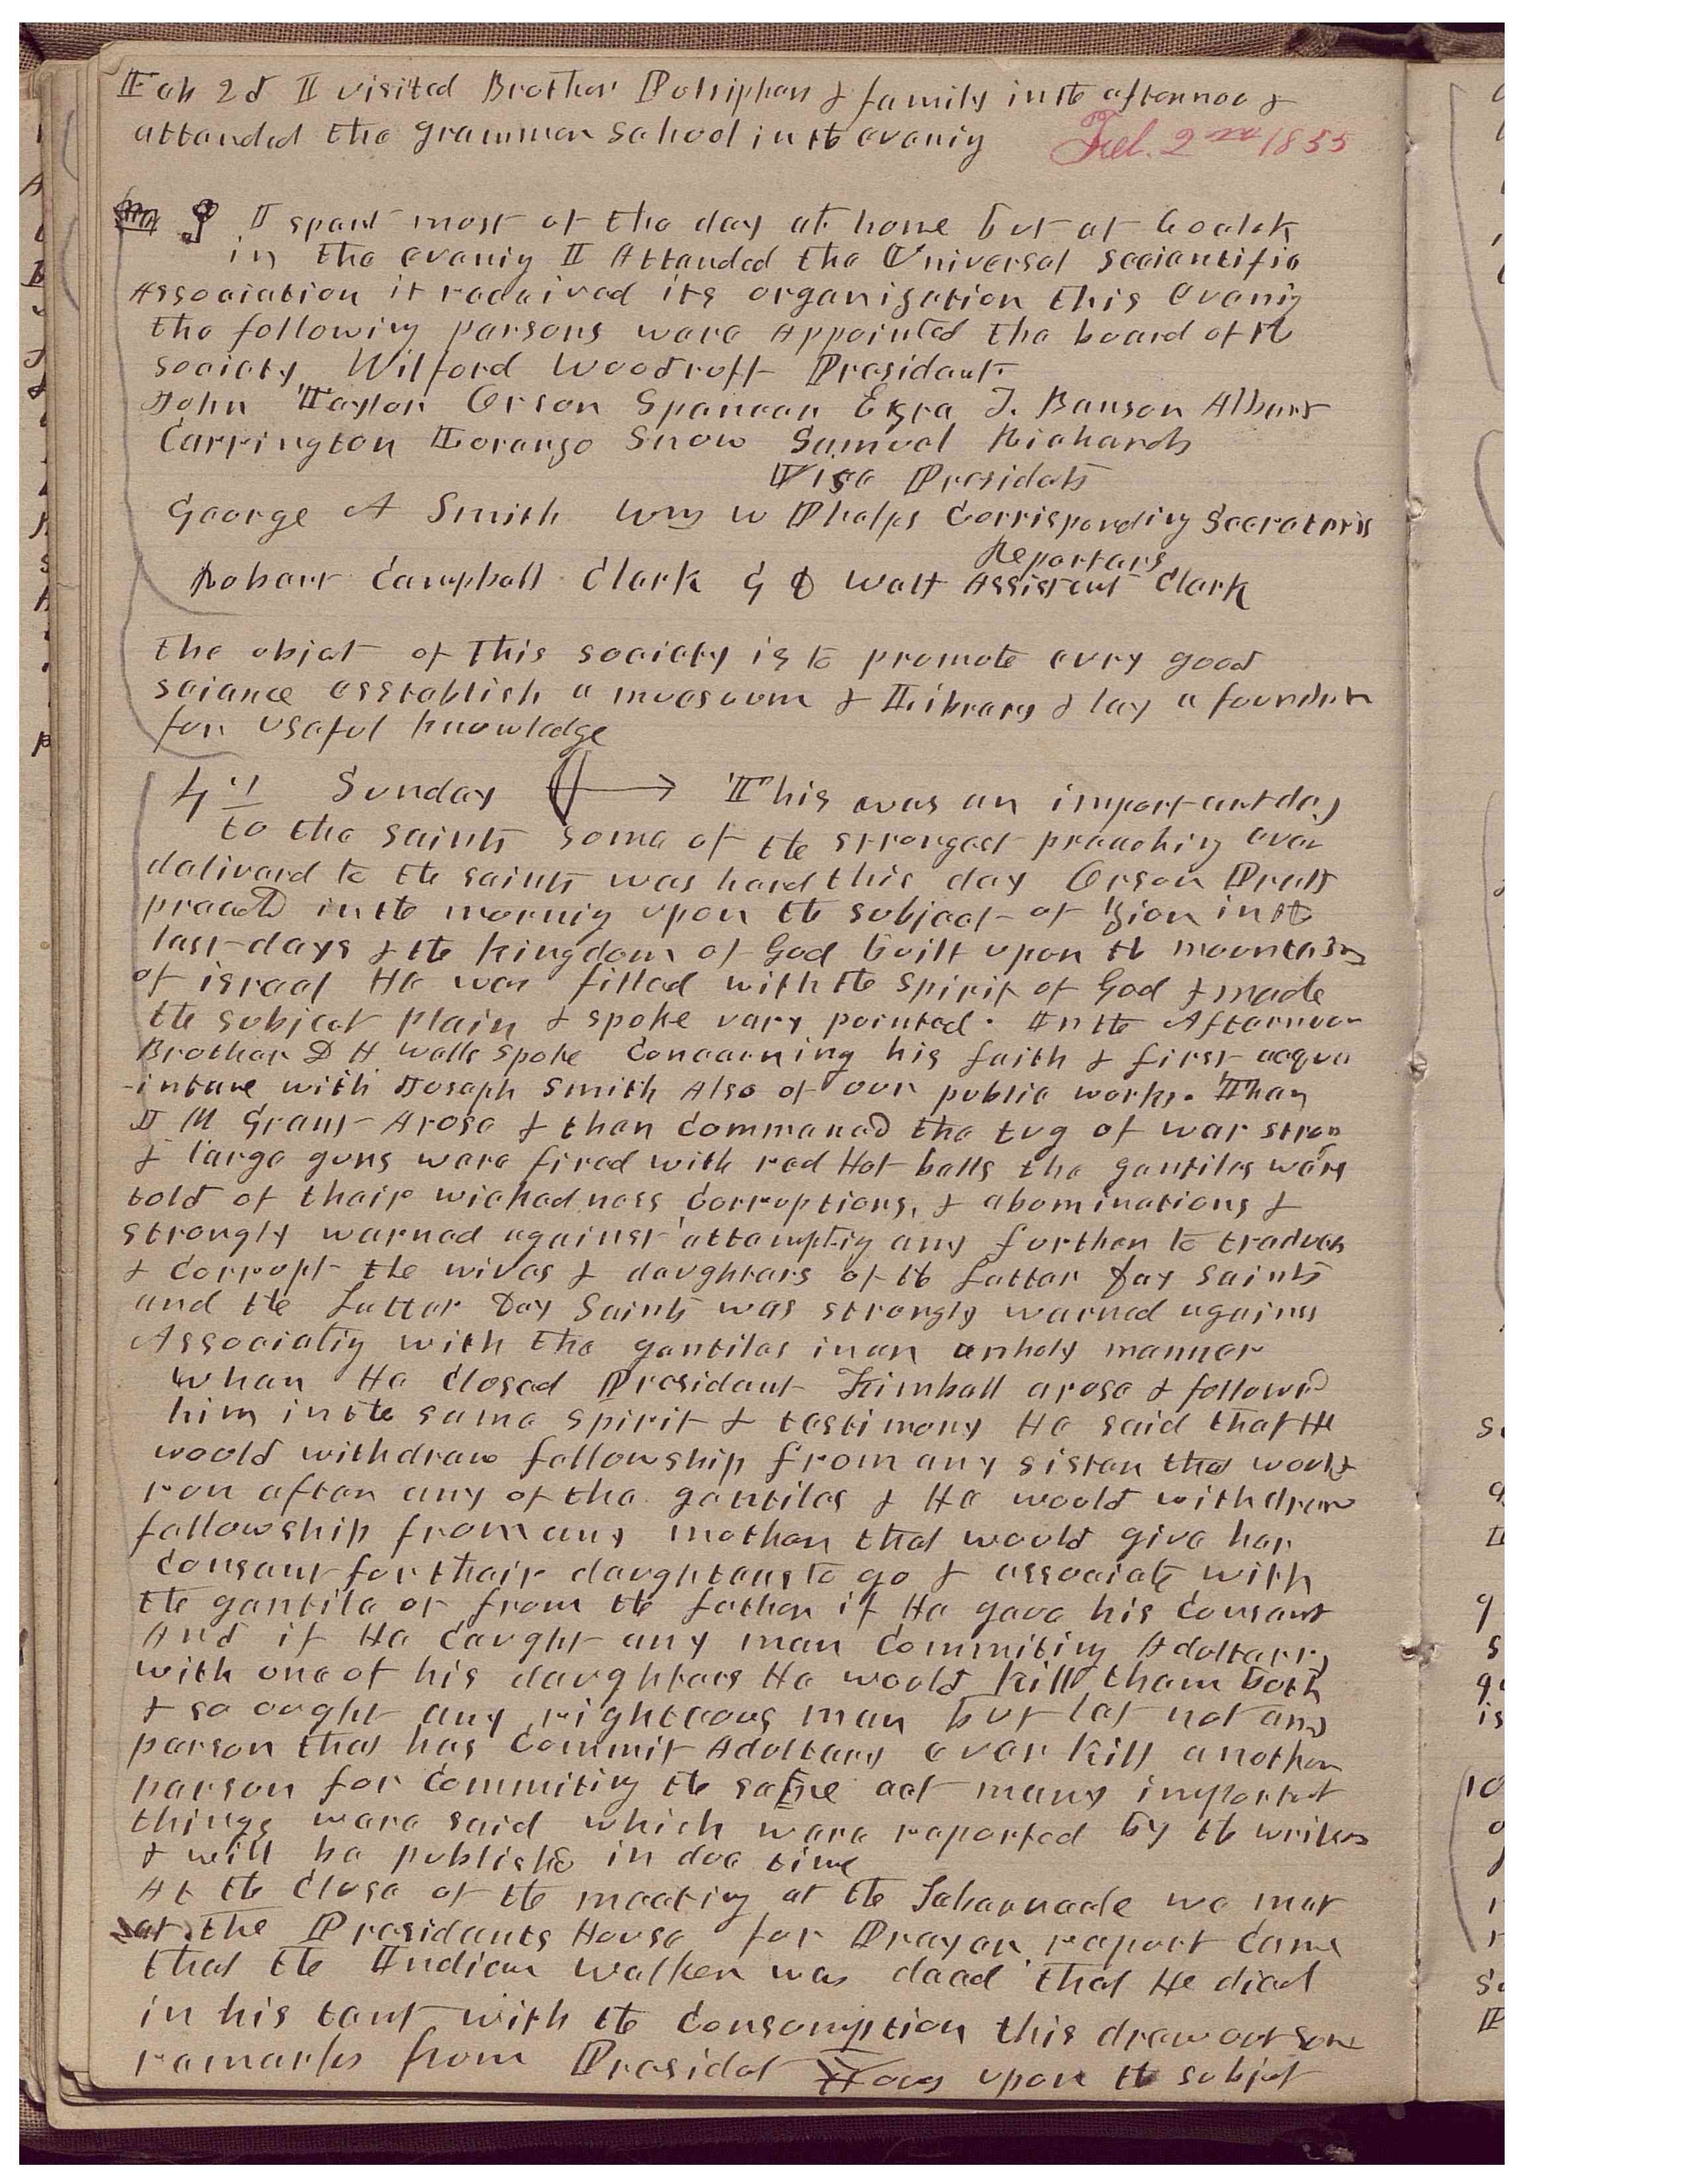 Feb 2d I visited Brother Pulsiphers & family in the afternoo &
attended the grammer School in the evenig Feb. 2nd 1855
3 I spent most of the day at home but at 6 oclok
in the evenig I Attended the Universal Scecientific
Association it received its organization this Evenig
the following persons were Appointed the board of the
society Wilford Woodruff President
John Taylor Orson Spencer Ezra T. Benson Albert
Carrington Lorenzo Snow Samuel Richards
Vise Presidets
George A Smith Wm W Phelps Corrisponding Secreteris
Reporters
Robert Campbell Clerk G D Watt Assistent Clerk
the objet of This society is to promote evry good
science esstablish a museoum & Library & lay a foundtn
for useful knowledge
4th Sunday This was an important day
to the saints some of the strongest preaching ever
deliverd to the saints was herd this day Orson Pratt
preachd in the mornig upon the subject of Zion in the
last days & the kingdom of God built upon the mountains
of israel He was filled with the spirit of God & made
the subject plain & spoke very pointed. In the Afternoon
Brother D H Wells spoke Concerning his faith & first acqua
-intance with Joseph Smith Also of our public works. Then
J M Grant Arose & then Commenced the tug of war strong
& large guns were fired with red Hot balls the gentiles were
told of their wickedness Corruptions, & abominations &
strongly warned against attemptig any further to traduce
& Corrupt the wives & daughters of the Latter Day Saints
and the Latter Day Saints was strongly warned against
Associatig with the gentiles in an unholy manner
When He Closed President Kimball arose & followed
him in the same spirit & testimony He said that He
would withdraw fellowship from any sister that would
run after any of the gentiles & He would withdraw
fellowship from any mother that would give her
Consent for their daughters to go & associate with
the gentile or from the father if He gave his Consent
And if He Caught any man Commiting Adultery
with one of his daughters He would kill them both
& so ought any righteous man but let not any
person that has Commit Adultery ever kill another
person for Commiting the same act many important
things were said which were reported by the writers
& will be published in due time
At the Close of the meeting at the Tabernacle we met
at the Presidents House for Prayer. report Came
that the Indian Walker was dead that He died
in his tent with the Consumption this drew out some
remarks from Presidet Young upon the subjet